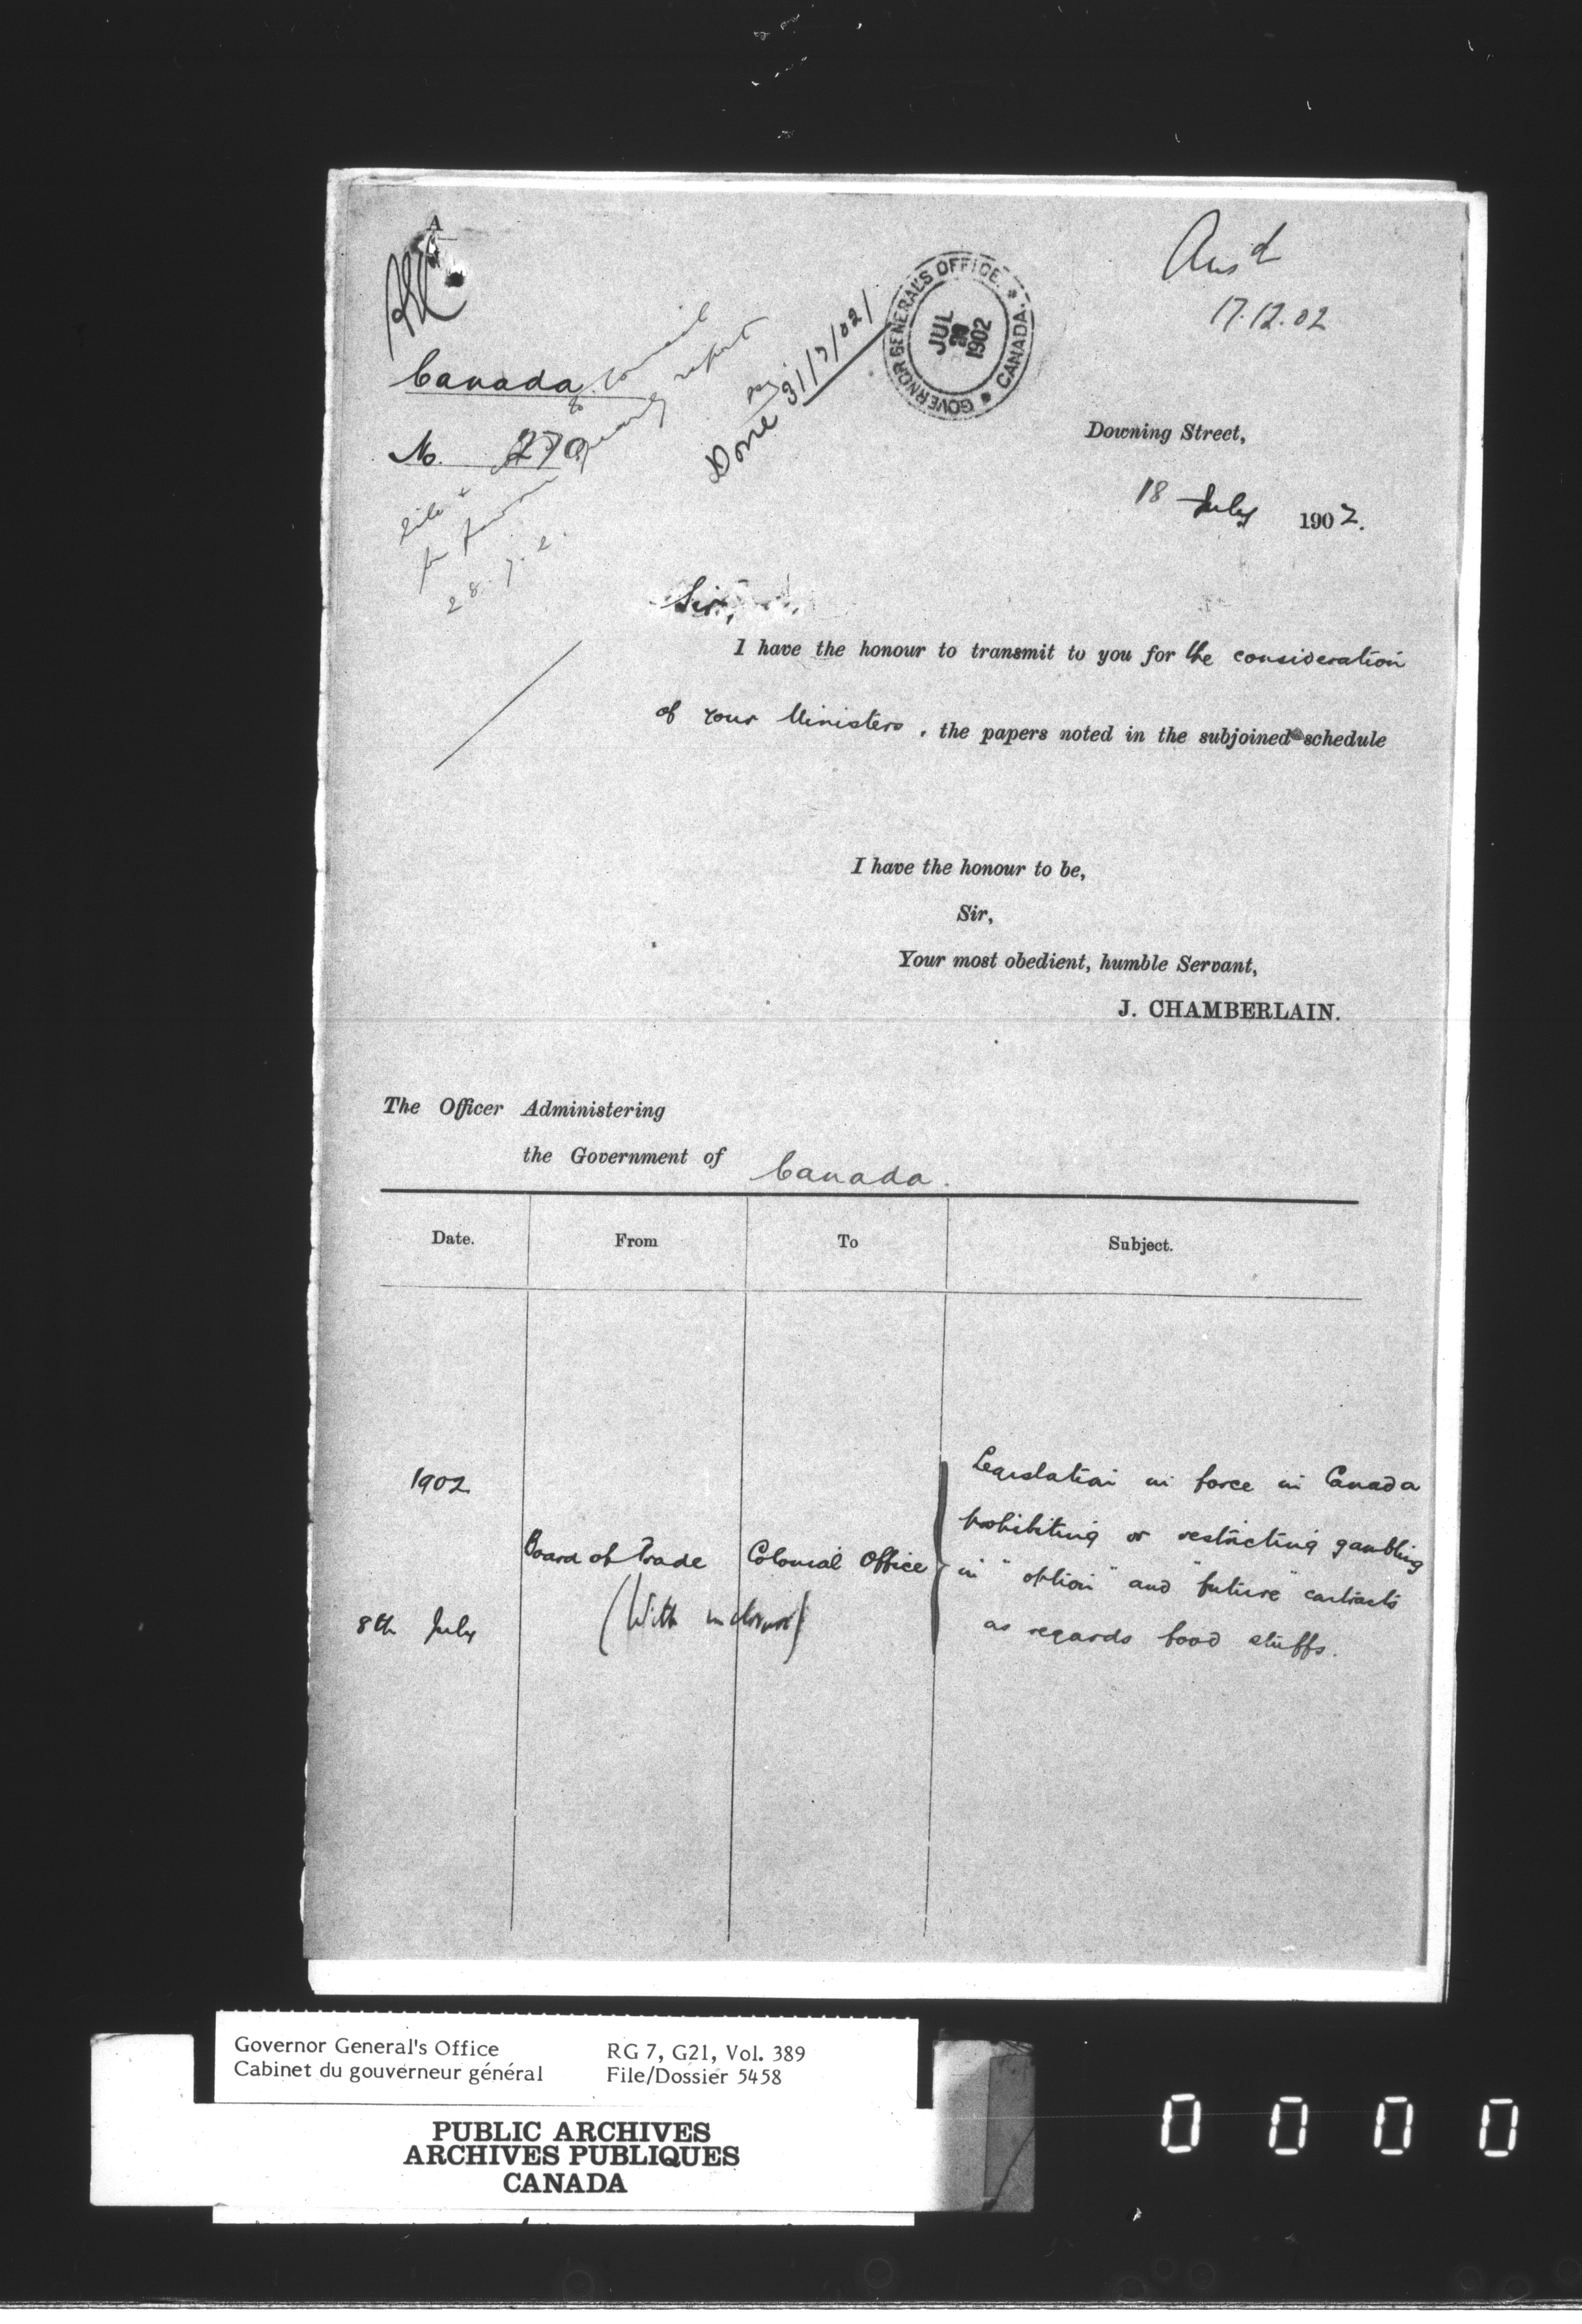 A
Ans'd
17.12.02
GOVERNOR GENERAL'S OFFICE
CANADA
JUL
1902
Done 31/7/02
Canada
No. 270
28.7.2.
Downing Street,
18 July 1902.
Sir,
I have the honour to transmit to you for the consideration
of your Ministers, the papers noted in the subjoined schedule
I have the honour to be,
Sir,
Your most obedient, humble Servant,
J. CHAMBERLAIN.
The Officer Administering
the Government of Canada.
Date. From To Subject.
1902
8th July
Board of Trade
(With inclosure)
Colonial Office
Legislation in force in Canada
prohibiting or restricting gambling
in "option" and "future" contracts
as regards food stuffs.
Governor General's Office
Cabinet du gouverneur général
RG 7, G21, Vol. 389
File/Dossier 5458
PUBLIC ARCHIVES
ARCHIVES PUBLIQUES
CANADA
0 0 0 0